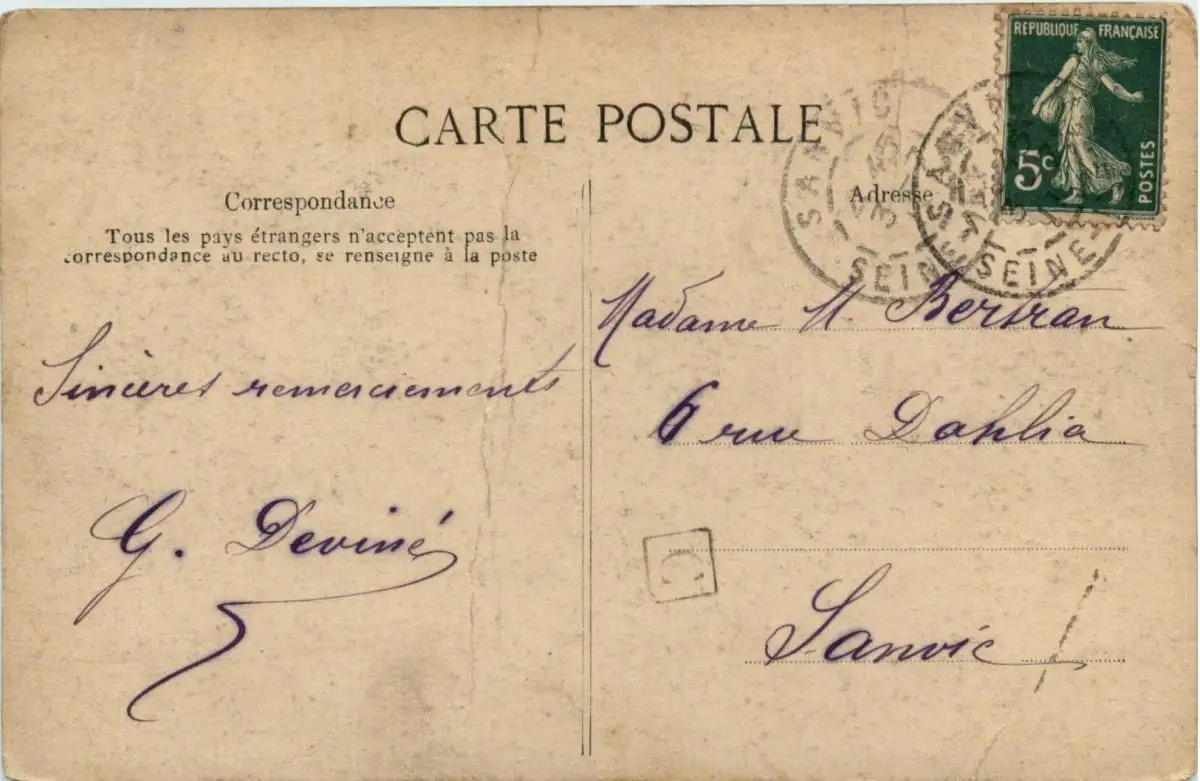 CARTE POSTALE
Correspondance
Tous les pays étrangers n'acceptent pas la
correspondance au recto, se renseigne à la poste
Sincères remerciements
G. Deviné
Adresse
Madame M. Bertran
6 rue Dahlia
Sanvic
REPUBLIQUE FRANÇAISE
5c
POSTES
SANVIC
SEINE
SANVIC
SEINE
C